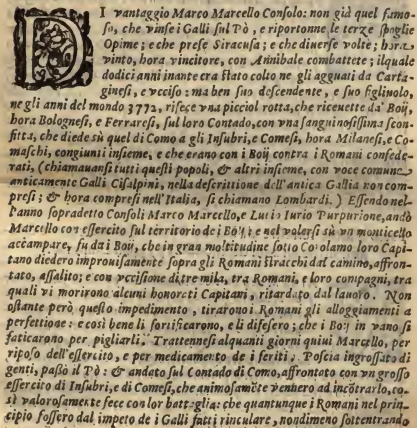 DI vantaggio Marco Marcello Consolo: non già quel famo-
so, che vinse i Galli sul Pò, e riportonne le terze spoglie
Opime; e che prese Siracusa; e che diuerse volte; hora
vinto, hora vincitore, con Annibale combattete; ilquale
dodici anni inanzi era stato colto ne gli agguai da Carta-
ginesi, e vcciso: ma ben suo descendente, e suo figliuolo,
ne gli anni del mondo 3772, rifece vna picciol rotta, che riceuette da' Boij,
hora Bolognesi, e Ferraresi, sul loro Contado, con vna sanguinosissima scon-
fitta, che diede sù quel di Como a gli Insubri, e Comesi, hora Milanesi, e Co-
maschi, congiunti insieme, e che erano con i Boij contra i Romani confede-
rati, (chiamauansi tutti questi popoli, & altri insieme, con voce comune
anticamente Galli Cisalpini, nella descrittione dell'antica Gallia non com-
presi; & hora compresi nell'Italia, si chiamano Lombardi.) Essendo nel-
l'anno sopradetto Consoli Marco Marcello, e Lutio Iurio Purpurione, andò
Marcello con essercito sul territorio de i Boij; e nel volersi sù vn monticello
accampare, fu da i Boij, che in gran moltitudine sotto Corolamo loro Capi-
tano diedero improuisamente sopra gli Romani stracchi dal camino, affron-
tato, assalito; e con vccisione di tre mila, tra Romani, e loro compagni, tra
quali vi morirono alcuni honorati Capitani, ritardato dal lauoro. Non
ostante però questo impedimento, tirarono i Romani gli alloggiamenti a
perfettione: e così bene li fortificarono, e li difesero; che i Boij in vano si
faticarono per pigliarli. Trattennesi alquanti giorni quiui Marcello, per
riposo dell'essercito, e per medicamento de i feriti. Poscia ingrossato di
genti, passò il Pò: & andato sul Contado di Como, affrontato con vn grosso
essercito di Insubri, e di Comesi, che animosamēte vennero ad incōtrarlo, co-
sì valorosamente fece con lor battaglia: che quantunque i Romani nel prin-
cipio fossero dal impeto de i Galli fatti rinculare, nondimeno sottentrando